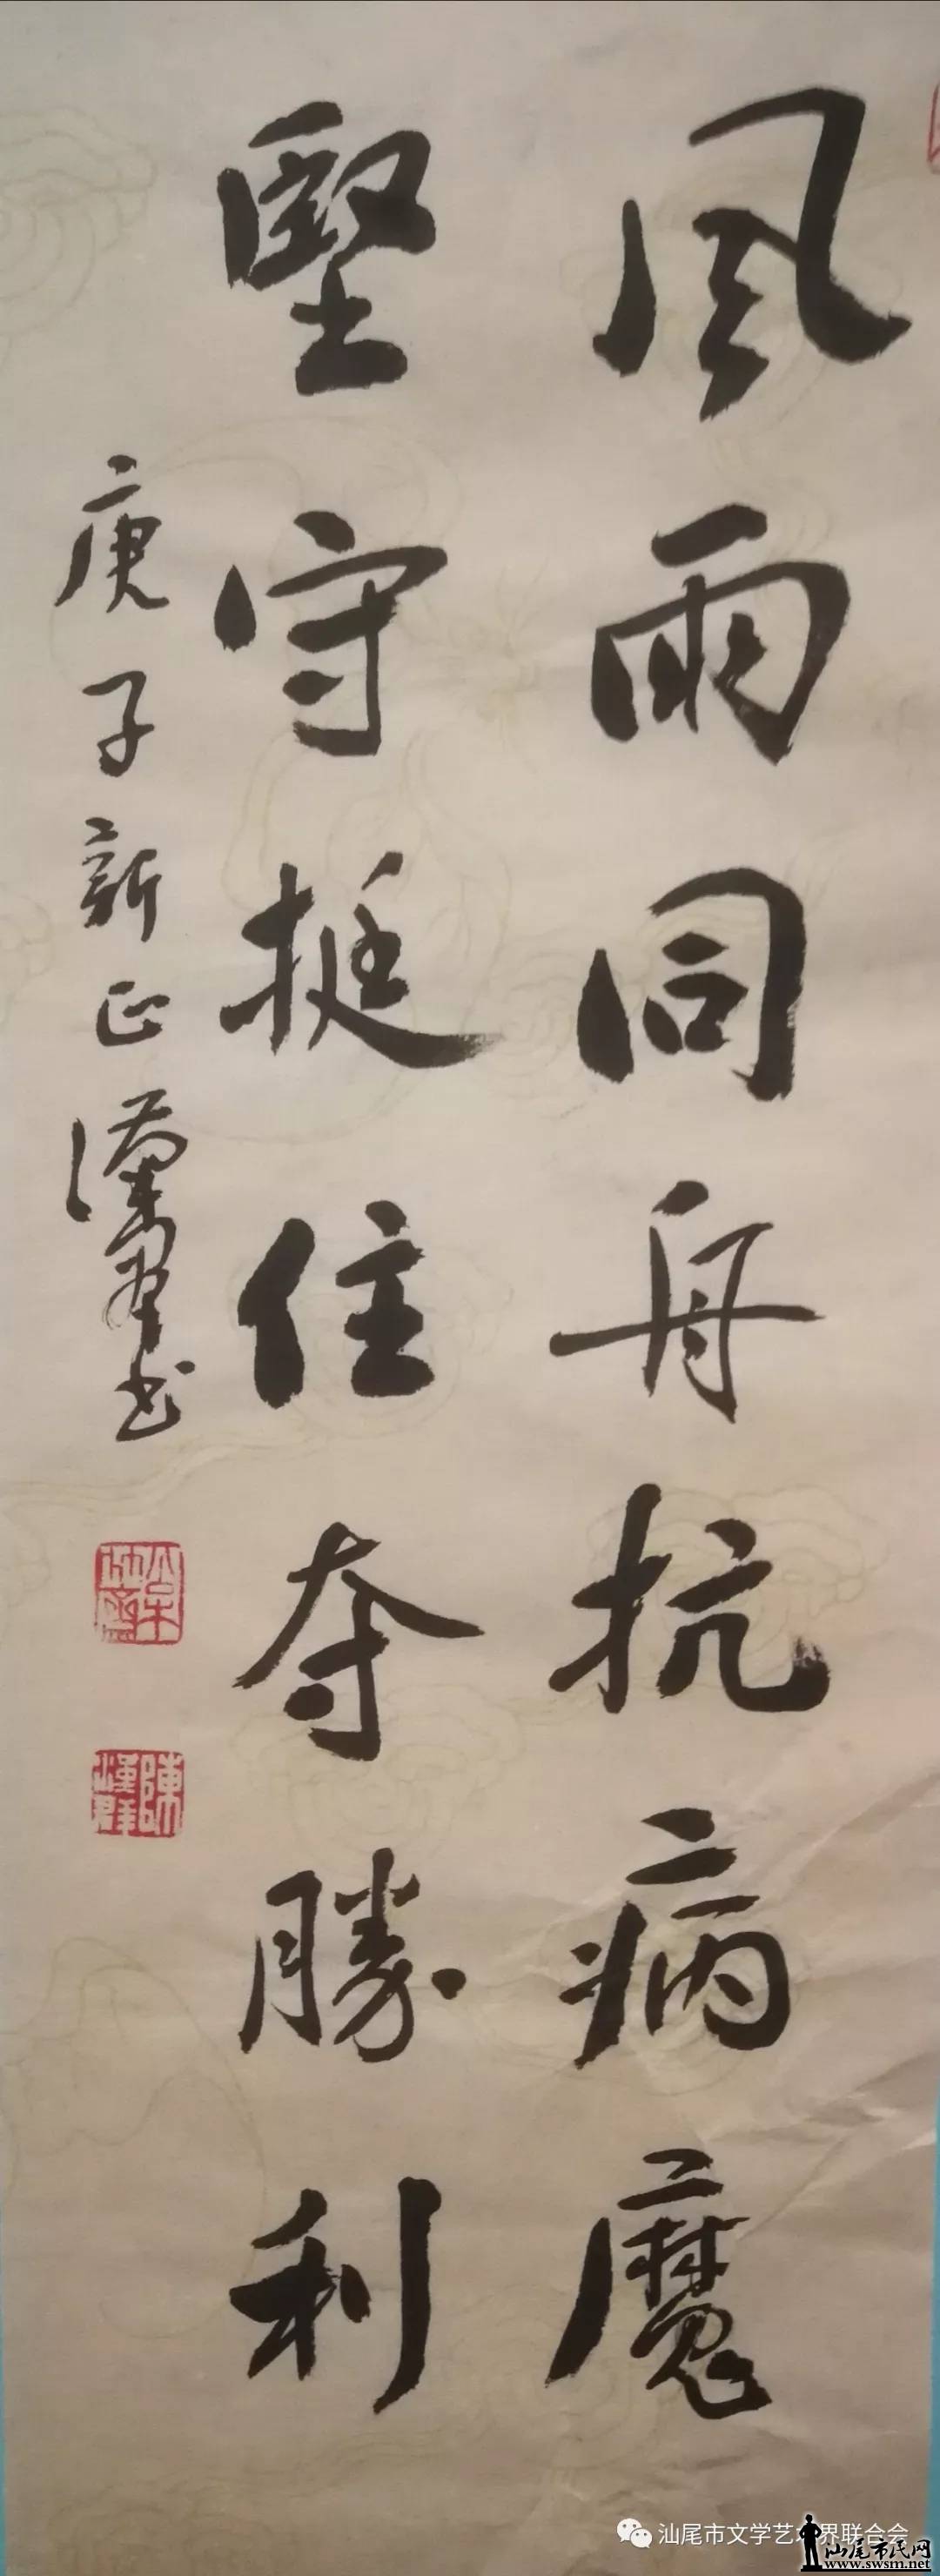 風雨同舟抗病魔
堅守挺住夺勝利
庚子新正漢群书
陳漢群
汕尾市文学艺术界联合会
汕尾市民网
www.swsm.net